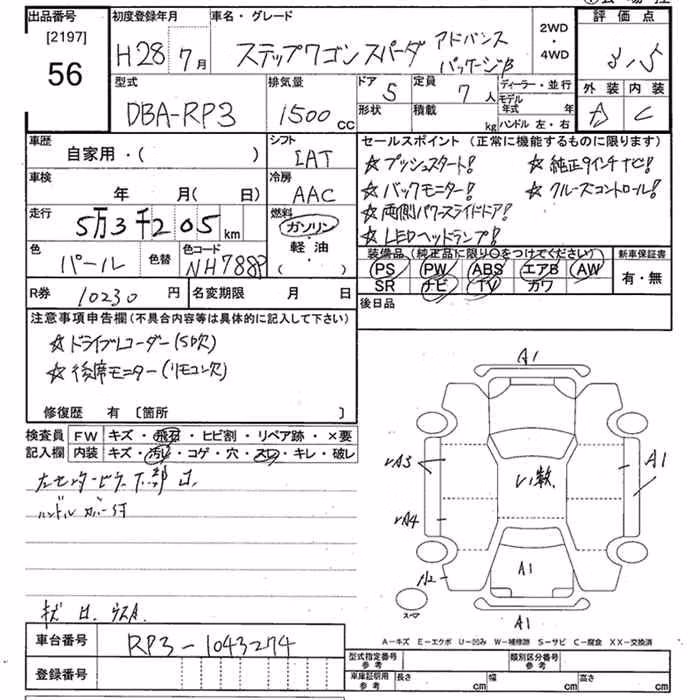 出品番号
[2197]
56
初度登録年月
H28 7月
車名・グレード
ステップワゴンスパーダ アドバンス
パッケージβ
2WD
・
4WD
評価点
3.5
型式
DBA-RP3
排気量
1500 cc
ドア
5
形状
定員
7人
積載
kg
ディーラー・並行
モデル年式 年
ハンドル 左・右
外装 内装
C
車歴
自家用・( )
シフト
IAT
車検
年 月( 日)
冷房
AAC
走行
5万3千205km
燃料
ガソリン
・
軽油
・
( )
色
パール
色替
色コード
NH788P
R券
10230円
名変期限 月 日
セールスポイント (正常に機能するものに限ります)
☆ プッシュスタート! ☆ 純正9インチナビ!
☆ バックモニター! ☆ クルーズコントロール!
☆ 両側パワースライドドア!
☆ LEDヘッドランプ!
装備品 (純正品に限り○をつけてください)
PS PW ABS エアB AW
SR ナビ TV カワ
新車保証書
有・無
後日品
注意事項申告欄 (不具合内容等は具体的に記入して下さい)
☆ ドライブレコーダー(SD欠)
☆ 後席モニター(リモコン欠)
修復歴 有 〔箇所 〕
検査員
記入欄
FW キズ・飛石・ヒビ割・リペア跡・×要
内装 キズ・汚レ・コゲ・穴・スレ・キレ・破レ
ハンドルカバー付
A1
A3
A4
A2
い数
A1
A1
A1
スペア
A-キズ E-エクボ U-凹み W-補修跡 S-サビ C-腐食 XX-交換済
車台番号
RP3-1043274
登録番号
型式指定番号
参考
類別区分番号
参考
車庫証明用
参考
長さ cm
幅 cm
高さ cm